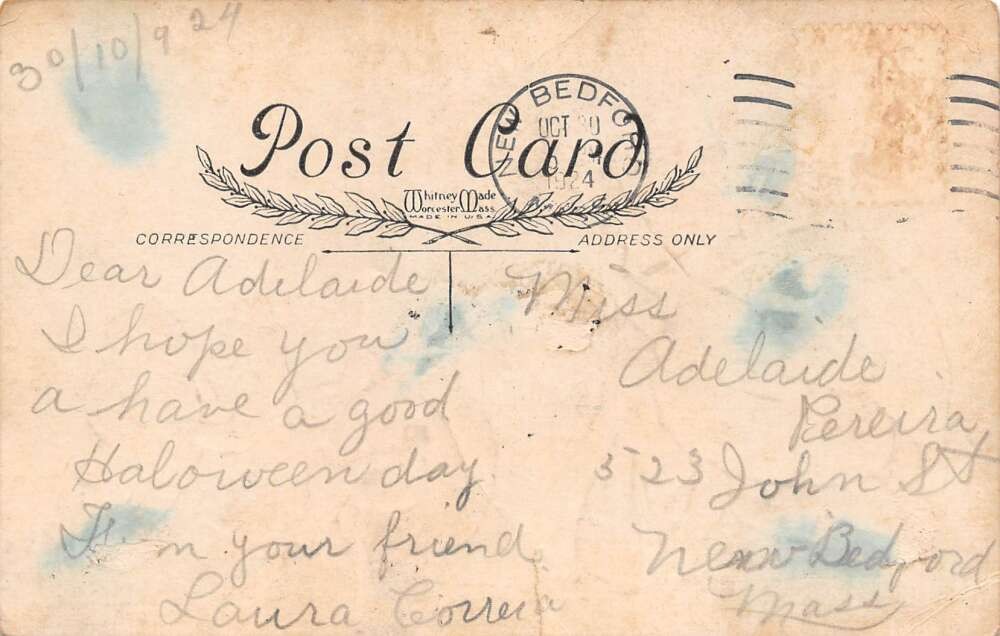 30/10/924
Post Card
NEW BEDFORD
OCT 30
1924
MASS.
Whitney Made
Worcester Mass
MADE IN U.S.A.
CORRESPONDENCE
ADDRESS ONLY
Dear Adelaide
I hope you
a have a good
Haloween day
From your friend
Laura Correia
Miss
Adelaide
Pereira
523 John St
New Bedford
Mass